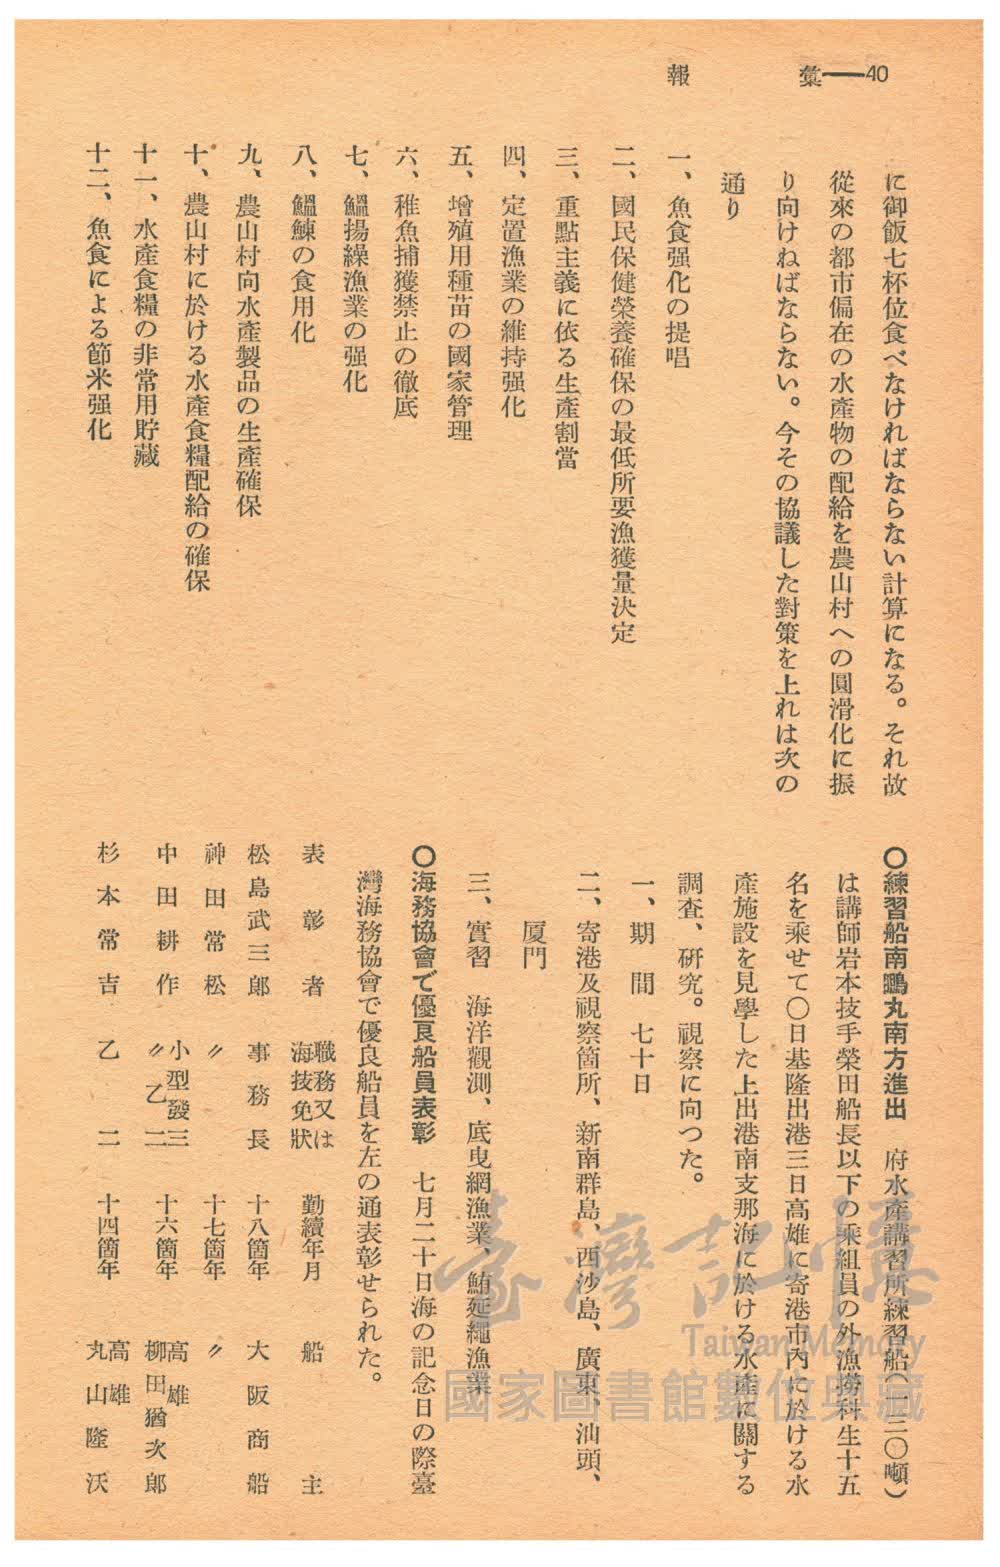 彙報―40
に御飯七杯位食べなければならない計算になる。それ故
從來の都市偏在の水產物の配給を農山村への圓滑化に振
り向けねばならない。今その協議した對策を上れは次の
通り
一、魚食强化の提唱
二、國民保健榮養確保の最低所要漁獲量決定
三、重點主義に依る生產割當
四、定置漁業の維持强化
五、增殖用種苗の國家管理
六、稚魚捕獲禁止の徹底
七、鰮揚繰漁業の强化
八、鰮鰊の食用化
九、農山村向水產製品の生產確保
十、農山村に於ける水產食糧配給の確保
十一、水產食糧の非常用貯藏
十二、魚食による節米强化
〇練習船南鵬丸南方進出 府水產講習所練習船(一三〇噸)
は講師岩本技手榮田船長以下の乘組員の外漁撈科生十五
名を乘せて〇日基隆出港三日高雄に寄港市內に於ける水
產施設を見學した上出港南支那海に於ける水產に關する
調査、硏究。視察に向つた。
一、期間 七十日
二、寄港及視察箇所、新南群島、西沙島、廣東、汕頭、
厦門
三、實習 海洋觀測、底曳網漁業、鮪延繩漁業
〇海務協會で優良船員表彰 七月二十日海の記念日の際臺
灣海務協會で優良船員を左の通表彰せられた。
表彰者 職務又は海技免狀 勤續年月 船主
松島武三郎 事務長 十八箇年 大阪商船
神田常松 〃 十七箇年 〃
中田耕作 小型發三〃乙二 十六箇年 高雄柳田猶次郎
杉本常吉 乙二 十四箇年 高雄丸山隆沃
臺灣記憶
Taiwan Memory
國家圖書館數位典藏